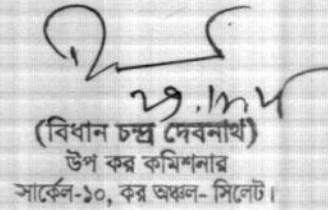 (বিধান চন্দ্র দেবনাথ)
উপ কর কমিশনার
সার্কেল-১০, কর অঞ্চল- সিলেট।